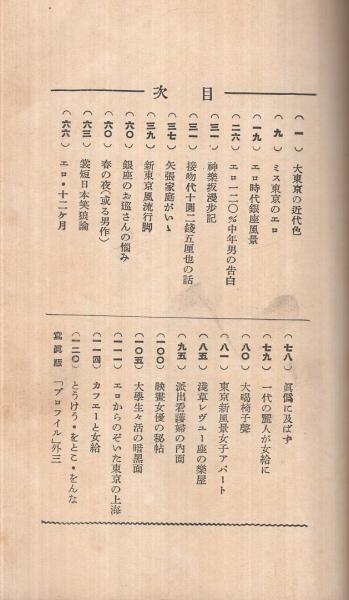 目次
(一) 大東京の近代色
(九) ミス東京のエロ
(一九) エロ時代銀座風景
(二六) エロ一二〇%中年男の告白
(三一) 神樂坂漫步記
(三一) 接吻代十圓二錢五厘也の話
(三七) 矢張家庭がいゝ
(三九) 新東京風流行脚
(六〇) 銀座のお巡さんの惱み
(六〇) 春の夜(或る男作)
(六三) 裳短日本笑狼論
(六六) エロ・十二ケ月
(七八) 眞僞に及ばず
(七九) 一代の麗人が女給に
(八〇) 大喝椅子聲
(八一) 東京新風景女子アパート
(八五) 淺草レヴユー座の樂屋
(九五) 派出看護婦の內面
(一〇〇) 映畫女優の秘帖
(一〇五) 大學生々活の暗黑面
(一一一) エロからのぞいた東京の上海
(一一四) カフエーと女給
(一二〇) とうけう・をとこ・をんな
寫眞版 「プロフイル」外三